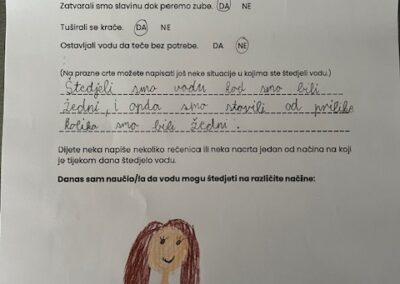 Zatvarali smo slavinu dok peremo zube. DA NE
Tuširali se kraće. DA NE
Ostavljali vodu da teče bez potrebe. DA NE
(Na prazne crte možete napisati još neke situacije u kojima ste štedjeli vodu.)
Štedjeli smo vodu kad smo bili
žedni, i onda smo stavili od prilike
koliko smo bili žedni.
Dijete neka napiše nekoliko rečenica ili neka nacrta jedan od načina na koji
je tijekom dana štedjelo vodu.
Danas sam naučio/la da vodu mogu štedjeti na različite načine: